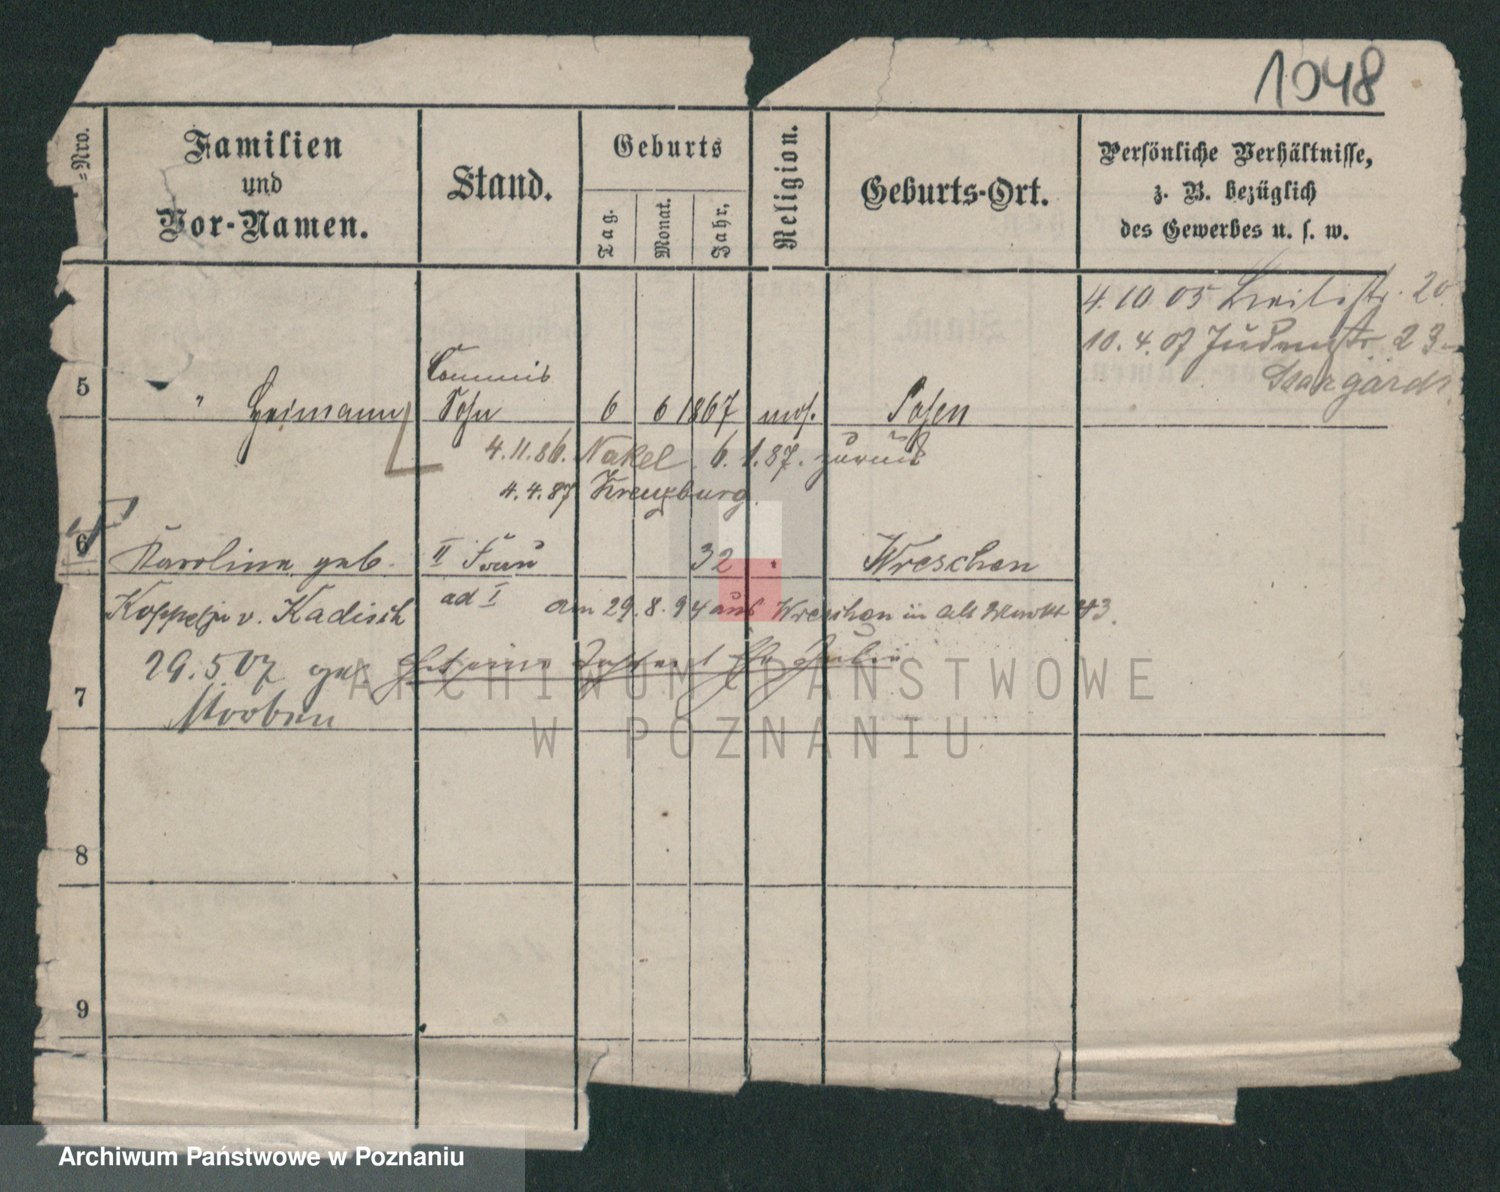 1048
Nro.
Familien
und
Vor-Namen.
Stand.
Geburts
Tag.
Monat.
Jahr,
Religion.
Geburts-Ort.
Persönliche Verhältnisse,
z. B. bezüglich
des Gewerbes u. s. w.
4.10.05 20
10.4.07 Judenstr. 23
5
" Heimann
Commis
Sohn
6 6 1867 mos. Posen
4.11.86. Nakel 6.1.87. zurück
4.4.87 Kreuzburg.
6
Karoline geb. II Frau 32 Wreschen
Koppel v. Kadisch ad I am 29.8.94 aus Wreschen in Alt Markt 43.
29.5.07
7
8
9
ARCHIWUM PAŃSTWOWE
W POZNANIU
Archiwum Państwowe w Poznaniu